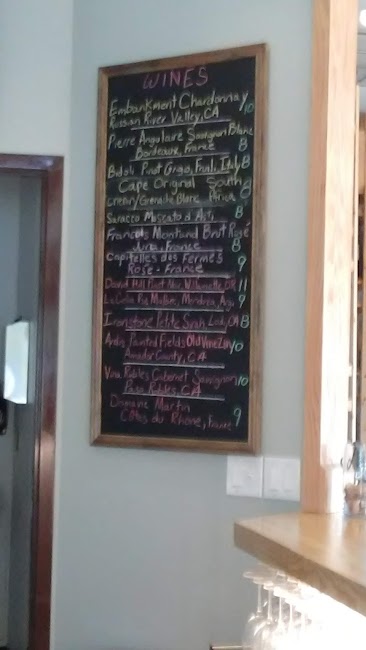 WINES
Embankment Chardonnay
Russian River Valley, CA 10
Pierre Sauvignon Blanc
Bordeaux, France 8
Bidoli Pinot Grigio, Friuli, Italy 8
Cape Original South
Chenin/Grenache Blanc 8
Saracco Moscato d'Asti 8
Francois Montand Brut Rosé
Jura, France 8
Capitelles des Fermes
Rosé - France 9
David Hill Pinot Noir, Willamette, OR 11
Malbec, Mendoza, Arg 9
Ironstone Petite Sirah Lodi, CA 8
Painted Fields Old Vine Zin
Amador County, CA 10
Vina Robles Cabernet Sauvignon
Paso Robles, CA 10
Domaine Martin
Côtes du Rhône, France 9